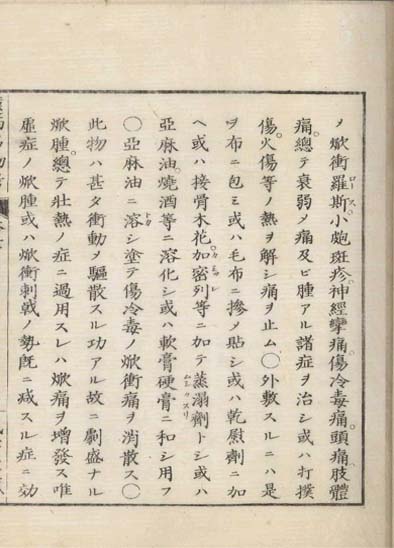 メ焮衝羅斯小皰斑疹神經攣痛傷冷毒痛頭痛肢體
痛總テ衰弱メ痛及ヒ腫アル諸症ヲ治シ或ハ打撲
傷火傷等ノ熱ヲ解シ痛ヲ止ム〇外敷スルニハ是
ヲ布ニ包ミ或ハ毛布ニ摻メ貼シ或ハ乾慰劑ニ加
ヘ或ハ接骨木花加密列等ニ加テ蒸溻劑トシ或ハ
亞麻油燒酒等ニ溶化シ或ハ軟膏硬膏ニ和シ用フ
〇亞麻油ニ溶シ塗テ傷冷毒ノ焮衝痛ヲ消散ス〇
此物ハ甚タ衝動メ驅散スル功アル故ニ劇盛ナル
焮腫總テ壯熱ノ症ニ過用スレハ焮痛ヲ增發ス唯
虛症ノ焮腫或ハ焮衝刺戟ノ勢旣ニ减スル症ニ効